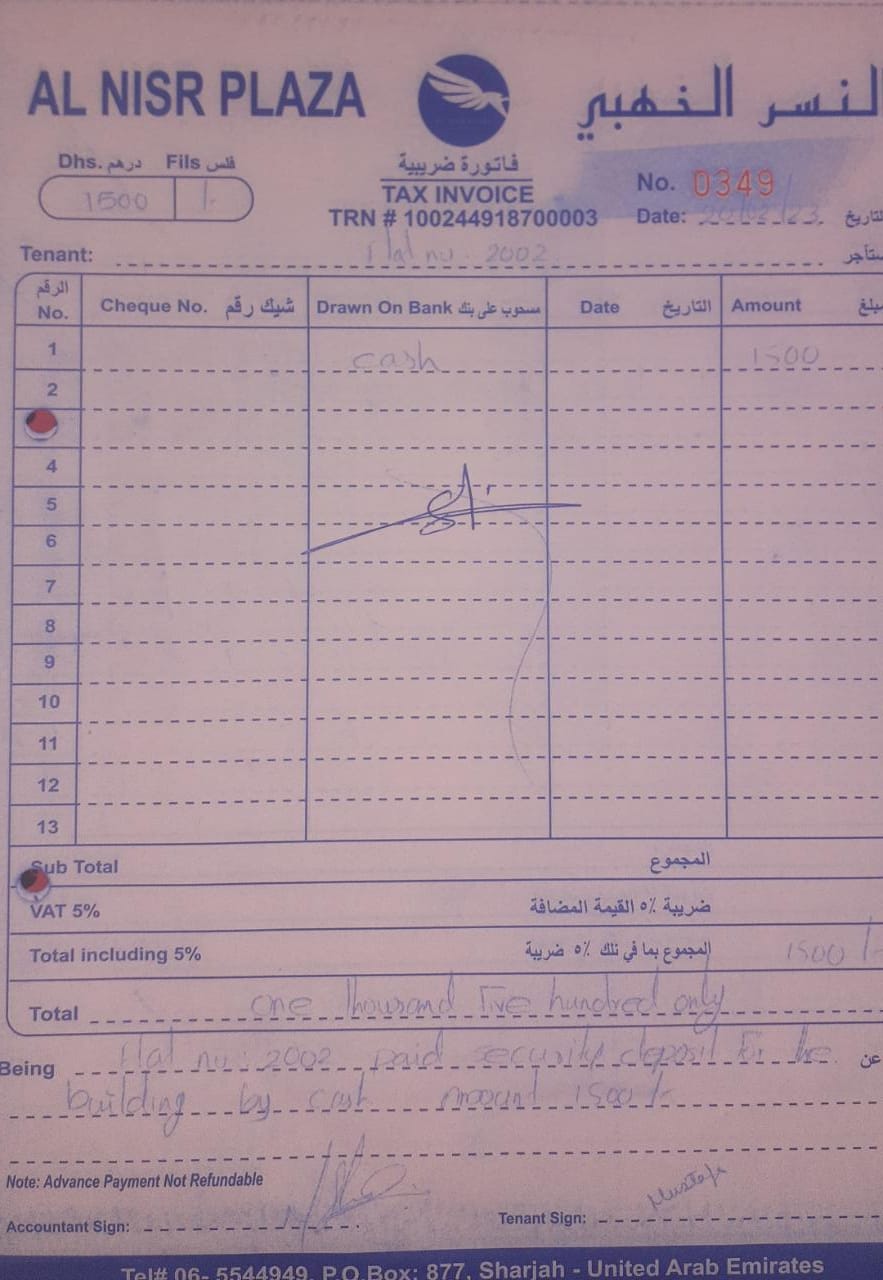 AL NISR PLAZA
النسر الذهبي
Dhs. درهم Fils فلس
1500 /-
فاتورة ضريبية
TAX INVOICE
TRN # 100244918700003
No. 0349
Date: 20/02/23 التاريخ
Tenant: Flat no. 2002
الرقم No. Cheque No. شيك رقم Drawn On Bank مسحوب على بنك Date التاريخ Amount
1 cash 1500
2
4
5
6
7
8
9
10
11
12
13
Sub Total المجموع
VAT 5% ضريبة ٥٪ القيمة المضافة
Total including 5% المجموع بما في ذلك ٥٪ ضريبة 1500/-
Total one Thousand Five hundred only
Being Flat no: 2002 paid security deposit for the عن
building by cash amount 1500/-
Note: Advance Payment Not Refundable
Accountant Sign:
Tenant Sign: Mustafa
Tel# 06- 5544949, P.O.Box: 877, Sharjah - United Arab Emirates